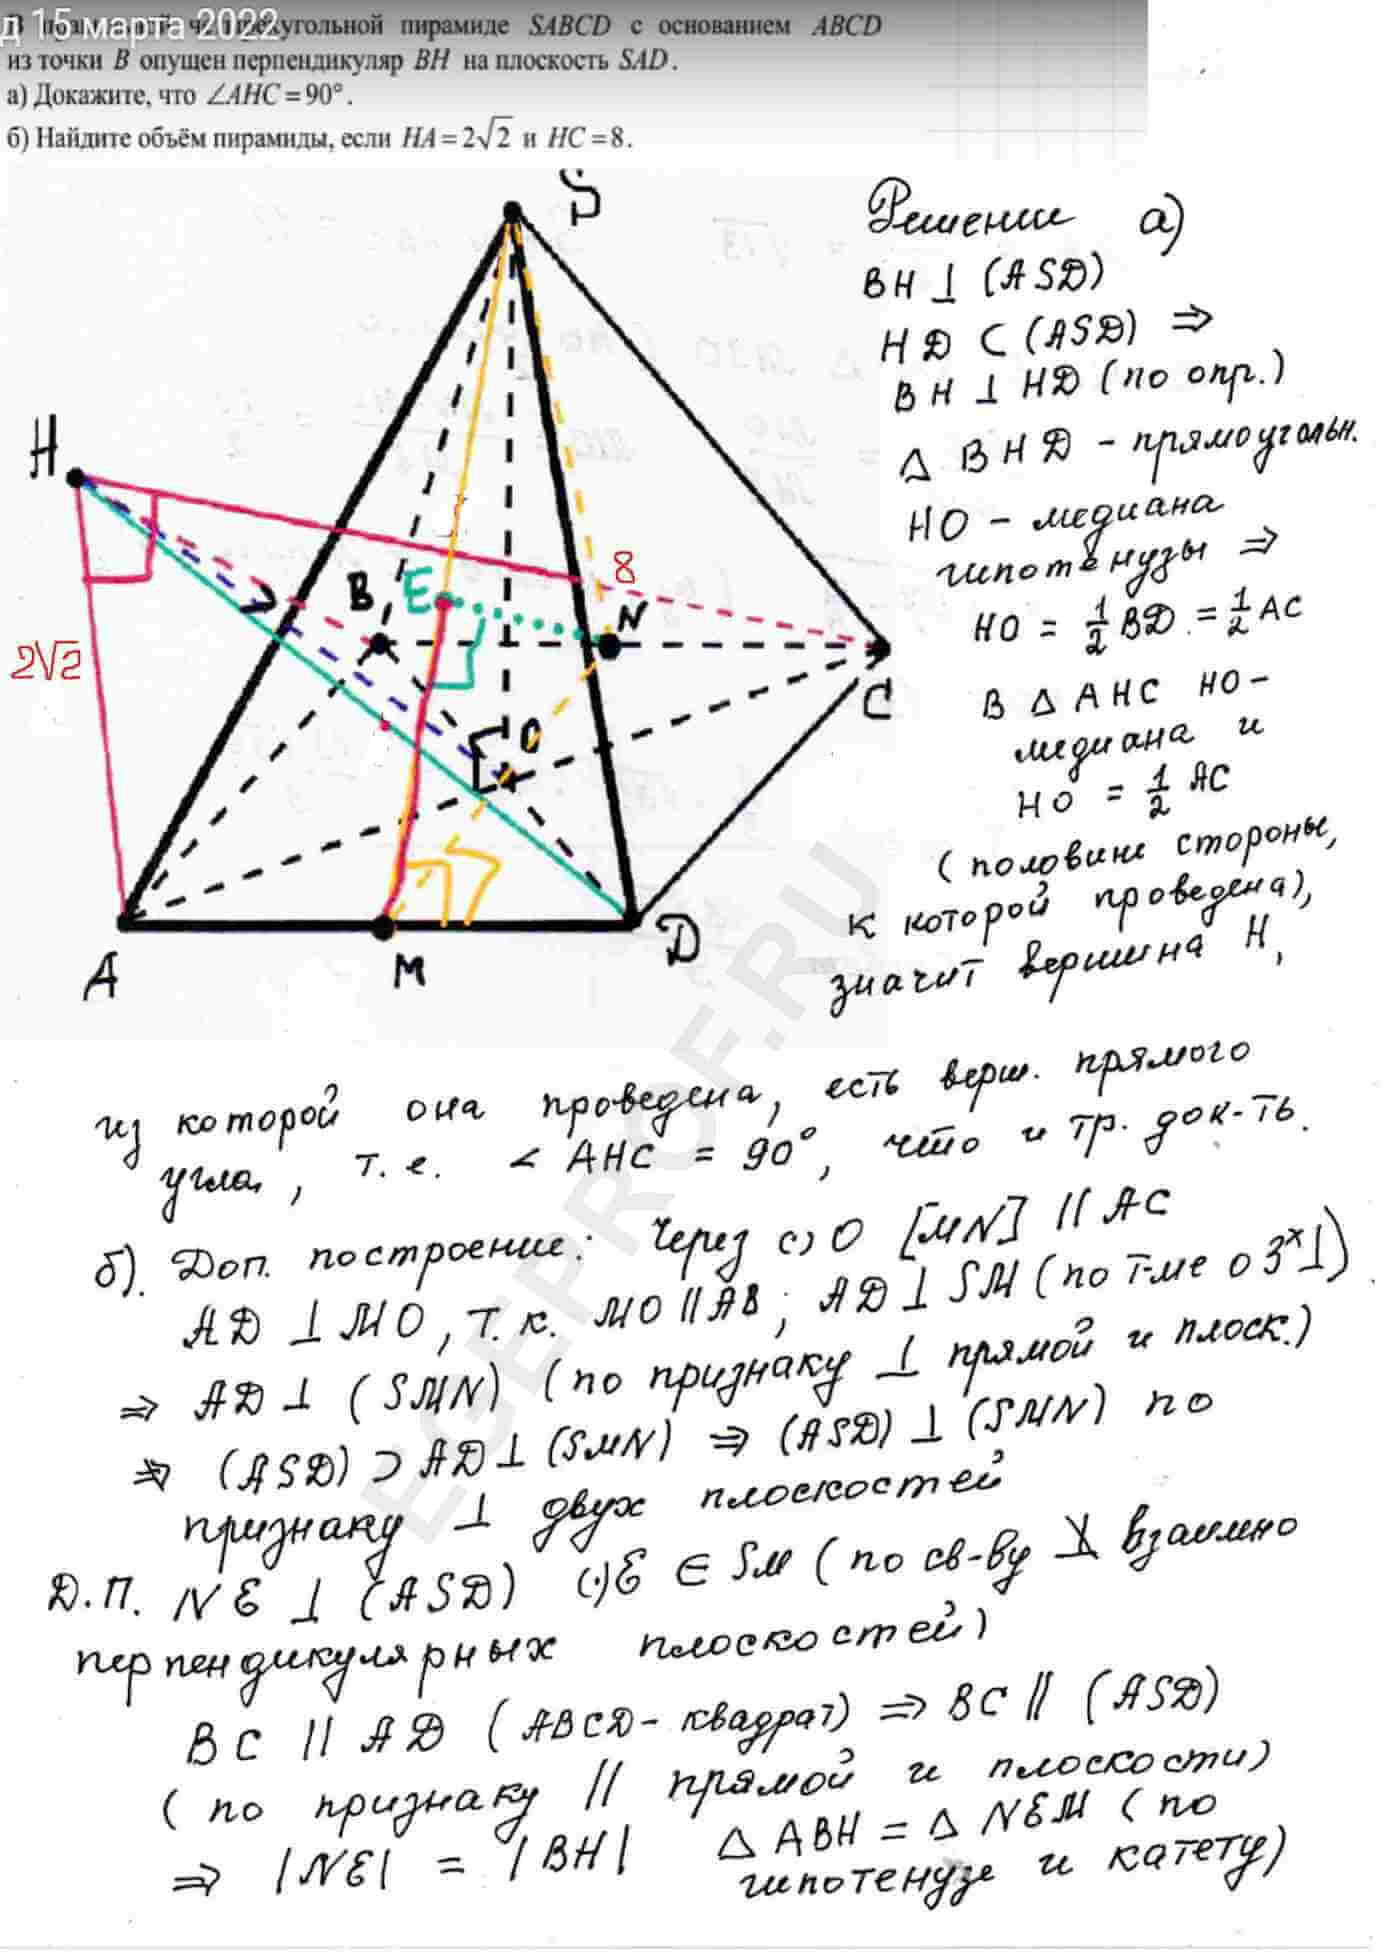 д 15 марта 2022
пирамиде SABCD с основанием ABCD
из точки B опущен перпендикуляр BH на плоскость SAD.
а) Докажите, что ∠AHC = 90°.
б) Найдите объём пирамиды, если HA = 2√2 и HC = 8.
S
H
B
E
8
N
2√2
O
C
A
M
D
Решение а)
BH ⊥ (ASD)
HD ⊂ (ASD) ⇒
BH ⊥ HD (по опр.)
△ BHD - прямоугольн.
HO - медиана
гипотенузы ⇒
HO = 1/2 BD = 1/2 AC
В △ AHC HO -
медиана и
HO = 1/2 AC
(половине стороны,
к которой проведена),
значит вершина H,
из которой она проведена, есть верш. прямого
угла, т.е. ∠ AHC = 90°, что и тр. док-ть.
б). Доп. построение: Через (·) O [MN] || AC
AD ⊥ MO, т.к. MO || AB; AD ⊥ SM (по т-ме о 3х ⊥)
⇒ AD ⊥ (SMN) (по признаку ⊥ прямой и плоск.)
⇒ (ASD) ⊃ AD ⊥ (SMN) ⇒ (ASD) ⊥ (SMN) по
признаку ⊥ двух плоскостей
Д.П. NE ⊥ (ASD) (·) E ∈ SM (по св-ву взаимно
перпендикулярных плоскостей)
BC || AD (ABCD - квадрат) ⇒ BC || (ASD)
(по признаку || прямой и плоскости)
⇒ |NE| = |BH| △ ABH = △ NEM (по
гипотенузе и катету)
EGEPROF.RU